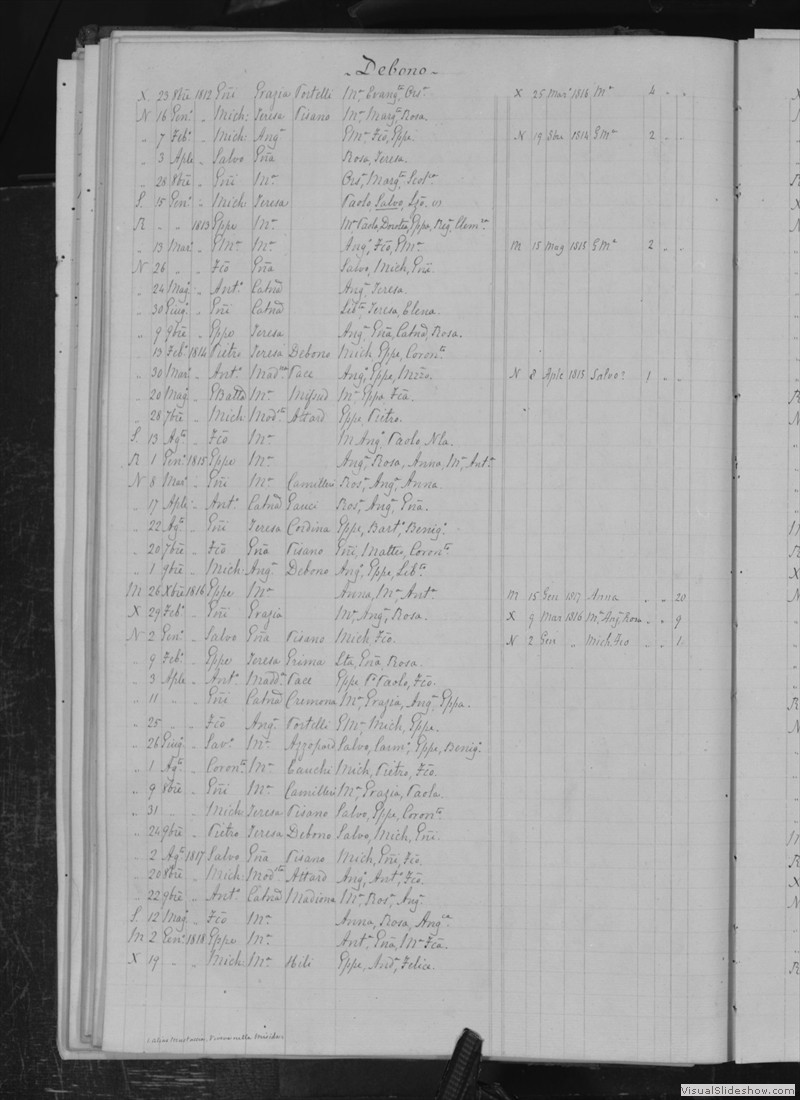 Debono
X 23 8bre 1812 Gñi Grazia Portelli Mª Evangta Orsª X 25 Marº 1816 Mª 4 " "
N 16 Genº " Mich: Teresa Pisano Mª Margta Rosa.
" 7 Febº " Mich: Angª GMª Fcõ, Gppe N 19 1814 GMª 2 " "
" 3 Aple " Salvo Gña Rosa, Teresa.
" 28 8bre " Gñi Mª Orsª, Margta
S. 15 Genº " Mich: Teresa Paolo, Salvo,
R " " 1813 Gppe Mª Mª Paolo, Gppa,
" 13 Marº " GMª Mª Angª, Fcõ, GMª M 15 Mag 1815 GMª 2 " "
N 26 " " Fcõ Gña Salvo, Mich, Gñi.
" 24 Magº " Antº Catnã Angª Teresa.
" 30 Giugº " Gñi Catnã Libta Teresa, Elena.
" 9 9bre " Gppe Teresa Angª Gña, Catnã, Rosa.
" 13 Febº 1814 Pietro Teresa Debono Mich, Gppe, Coronta
" 30 Marº " Antº Madna Pace Angº, Gppe, N 8 Aple 1815 Salvº 1 " "
" 20 Magº " GBatta Mª Mifsud Mª Gppa Fcã.
" 28 7bre " Mich Modta Attard Gppe, Pietro.
S. 13 Agto " Fcõ Mª M Angº Paolo Nla.
R 1 Genº 1815 Gppe Mª Angª, Rosa, Anna, Mª, Antª
N 8 Marº " Gñi Mª Camilleri Rosª, Angª, Anna.
" 17 Aple " Antº Catnã Gauci Rosª, Angª, Gña.
" 22 Agto " Gñi Teresa Cordina Gppe, Bartº, Benigº
" 20 7bre " Fcõ Gña Pisano Gñi, Matteo, Coronto
" 1 9bre " Mich Angª Debono Angª, Gppe, Libta
M 26 Xbre 1816 Gppe Mª Anna, Mª Antª M 15 Gen 1817 Anna " " 20
X 29 Febº " Gñi Grazia Mª, Angª, Rosa. X 9 Mar 1816 Mª, Angª, Rosa " " 9
N 2 Genº " Salvo Gña Pisano Mich, Fcõ. N 2 Gen " Mich Fcõ " " 1
" 9 Febº " Gppe Teresa Grima Gña Rosa.
" 3 Aple " Antº Maddª Pace Gppe Pº Paolo, Fcõ.
" 11 " " Gñi Catnã Cremona Mª, Grazia, Angª, Gppa.
" 25 " " Fcõ Angª Portelli GMª, Mich, Gppe.
" 26 Giugº " Savº Mª Azzopard Salvo, Carmº, Gppe, Benigº
" 1 Agto " Coronto Mª Cauchi Mich, Pietro, Fcõ.
" 9 8bre " Gñi Mª Camilleri Mª, Grazia, Paola.
" 31 " " Mich Teresa Pisano Salvo, Gppe, Coronto
" 24 9bre " Pietro Teresa Debono Salvo, Mich, Gñi.
" 2 Agto 1817 Salvo Gña Pisano Mich, Gñi, Fcõ.
" 20 8bre " Mich Modta Attard Angº, Antº, Fcõ.
" 22 9bre " Antº Catnã Madiona Mª, Rosª, Angª
S. 12 Magº " Fcõ Mª Anna, Rosa, Angca
M 2 Genº 1818 Gppe Mª Antª Gña, Mª Fcã.
X 19 " " Mich Mª Hili Gppe, Andª, Felice.
VisualSlideshow.com